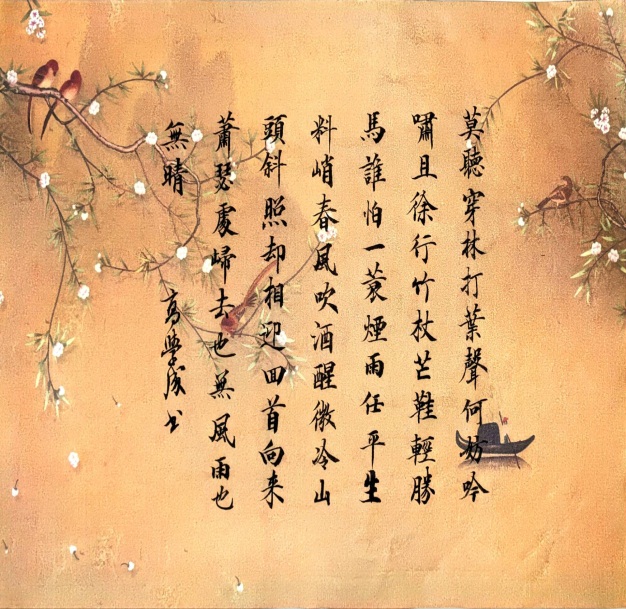 莫聽穿林打葉聲何妨吟
嘯且徐行竹杖芒鞋輕勝
馬誰怕一蓑煙雨任平生
料峭春風吹酒醒微冷山
頭斜照却相迎回首向来
蕭瑟處歸去也無風雨也
無晴
高學成书